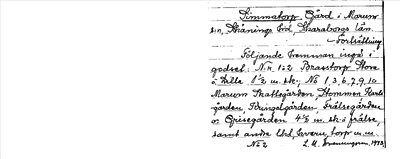 Simmatorp Gård i Marum
s:n, Skånings hd, Skaraborgs län.
Fortsättning
Följande hemman ingå i
godset: N:r 1 o 2 Brastorp Stora
o Lilla 1½ m. sk.; No 1, 3, 6, 7, 9, 10
Marum Skattegården, Stormen, Karls
gården, Kringelgården, Frälsegården
o. Grisegården 4⅝ m. sk. o frälse,
samt andra lht, kvarn, torp m.m.
No 2 L. M. 1933